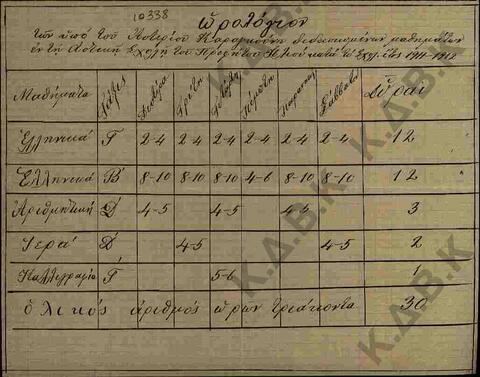 10338
ὡρολόγιον
τῶν ὑπὸ τοῦ Ἀστερίου διδασκομένων μαθημάτων
ἐν τῇ Ἀστικῇ Σχολῇ τοῦ Προφήτου κατὰ τὸ Σχολ. ἔτος 1911-1912
Μαθήματα Τάξις Δευτέρα Τρίτη Τετάρτη Πέμπτη Παρασκευή Σάββατον Ὧραι
Ἑλληνικά Γ 2-4 2-4 2-4 2-4 2-4 2-4 12
Ἑλληνικά Β 8-10 8-10 8-10 4-6 8-10 8-10 12
Ἀριθμητική Δ 4-5 4-5 4-5 3
Ἱερά Δ 4-5 4-5 2
Καλλιγραφία Γ 5-6 1
ὁλικός ἀριθμός ὡρῶν τριάκοντα 30
Κ.Δ.Β.Κ
Κ.Δ.Β.Κ
Κ.Δ.Β.Κ